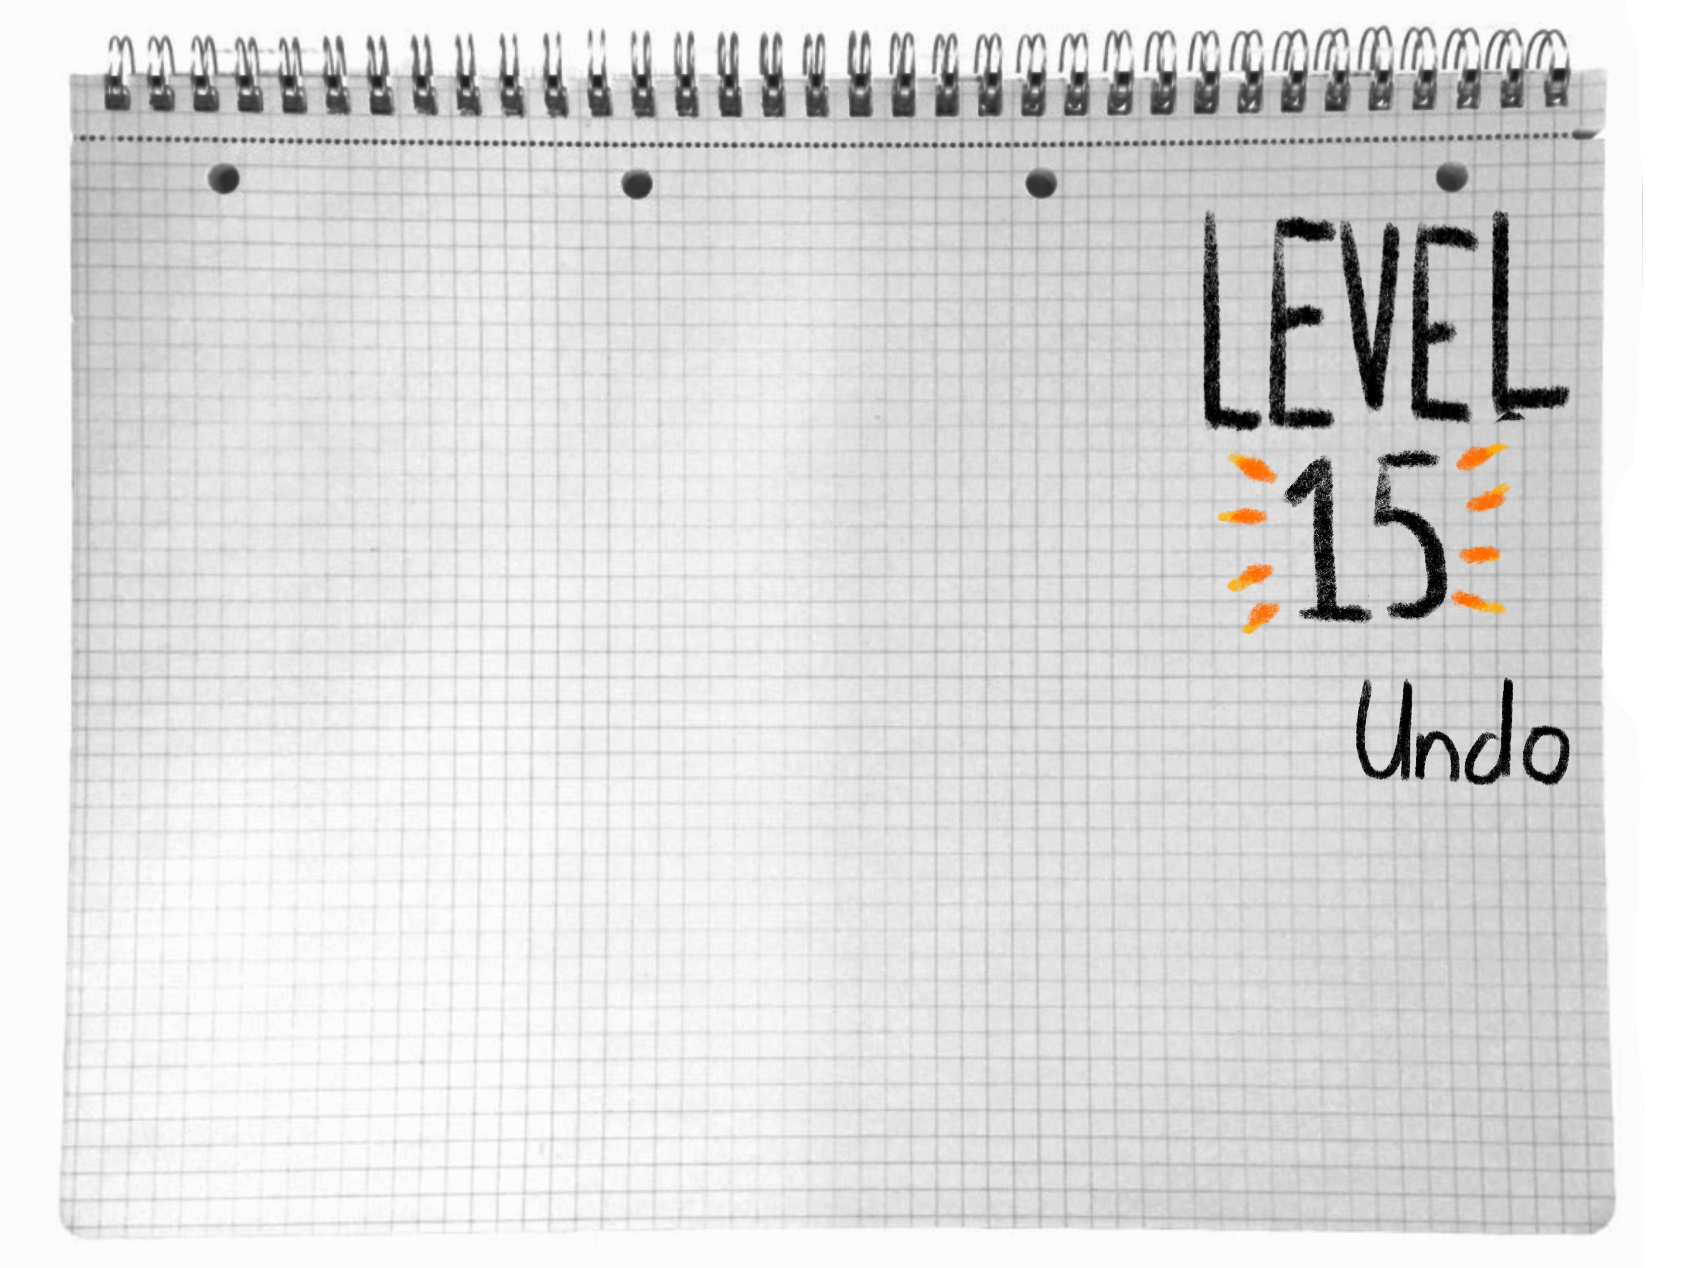 LEVEL
15
Undo